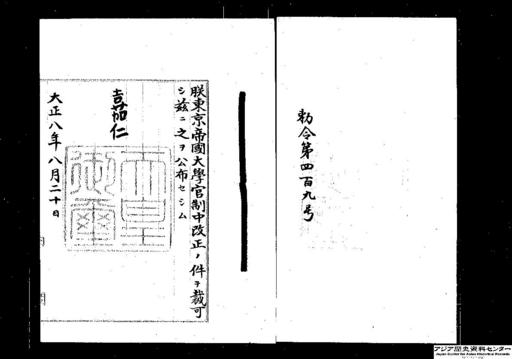 勅令第四百九号
朕東京帝國大學官制中改正ノ件ヲ裁可
シ茲ニ之ヲ公布セシム
嘉仁
天皇御璽
大正八年八月二十日
アジア歴史資料センター
Japan Center for Asian Historical Records